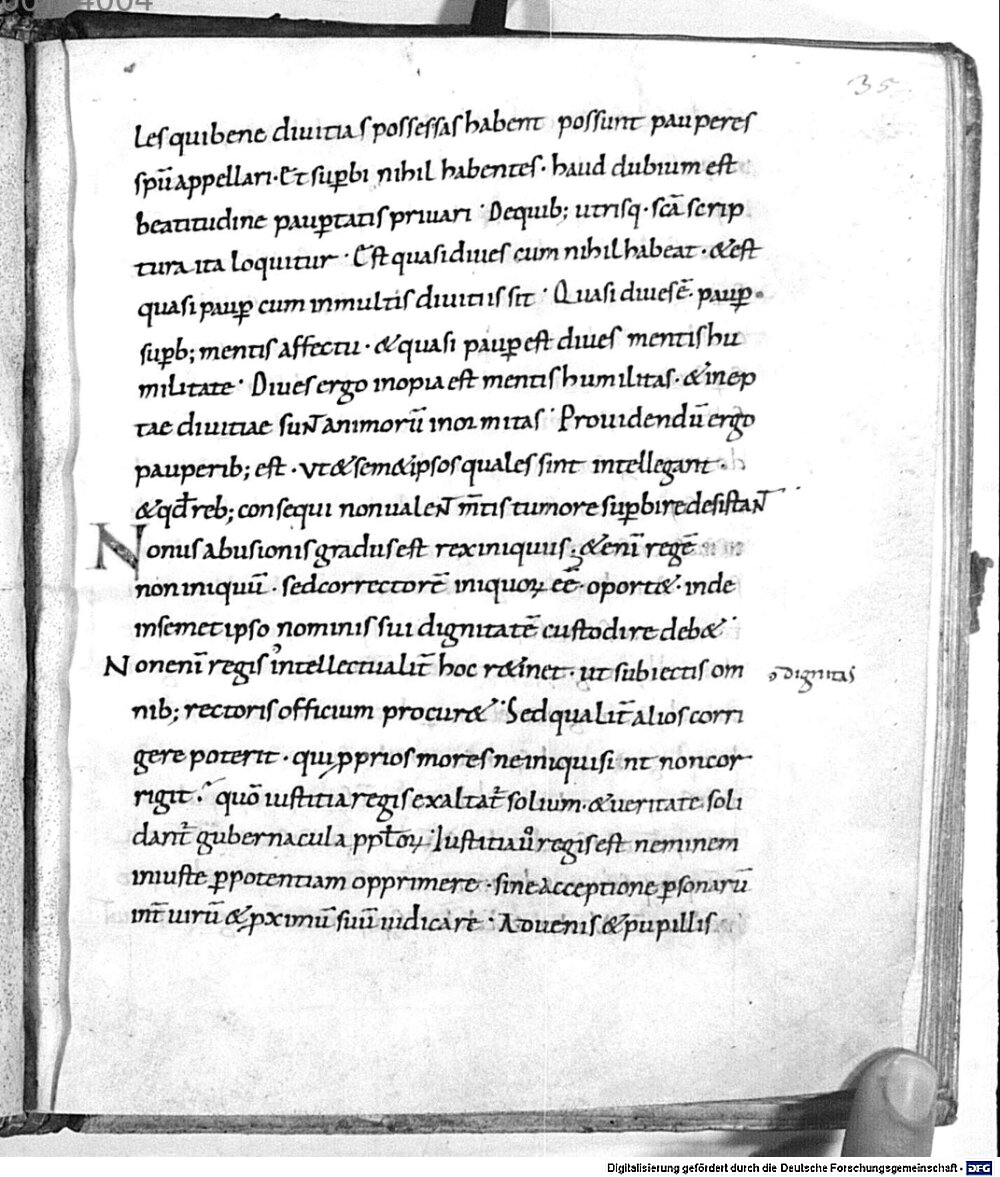 35
les qui bene diuitias possessas habent possunt pauperes
spū appellari · Et suꝑbi nihil habentes · haud dubium est
beatitudine pauꝑtatis priuari · De quib; utrisq · scā scrip
tura ita loquitur · Est quasi diues cum nihil habeat · & est
quasi pauꝑ cum in multis diuitiis sit · Quasi diues ē · pauꝑ ·
suꝑb; mentis affectu · & quasi pauꝑ est diues mentis hu
militate · Diues ergo inopia est mentis humilitas · & inep
tae diuitiae sunt animorū inormitas · Prouidendū ergo
pauperib; est · ut & sem&ipsos quales sint intellegant ·
& qđ reb; consequi non ualent m̄tis tumore suꝑbire desistant
Nonus abusionis gradus est rex iniquus ; & eni regē
non iniquū · sed correctorē iniquoꝝ eē · oport& · inde
in semet ipso nominis sui dignitatē custodire deb& ·
Non enī regis intellectualit̄ hoc r&inet · ut subiectis om
dignitas
nib; rectoris officium procur& · Sed qualit̄ alios corri
gere poterit · qui ꝓprios mores ne iniqui sint non cor
rigit · quō iustitia regis exaltat̄ solium · & ueritate soli
dant̄ gubernacula pplōꝝ · Iustitia ů regis est neminem
iniuste ꝑ potentiam opprimere · sine acceptione ꝑsonarū
int̄ uirū & ꝓximū suū iudicare · Aduenis & pupillis
Digitalisierung gefördert durch die Deutsche Forschungsgemeinschaft · DFG